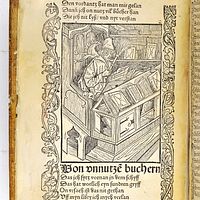 Den vordantz hat man mir gelan
Dann ich on nutz vil bücher han
Die ich nit lyß / und nyt verstan
Von vnnutzē buchern
Das ich sytz vornan jn dem schyff
Das hat worlich eyn sundren gryff
On vrsach ist das nit gethan